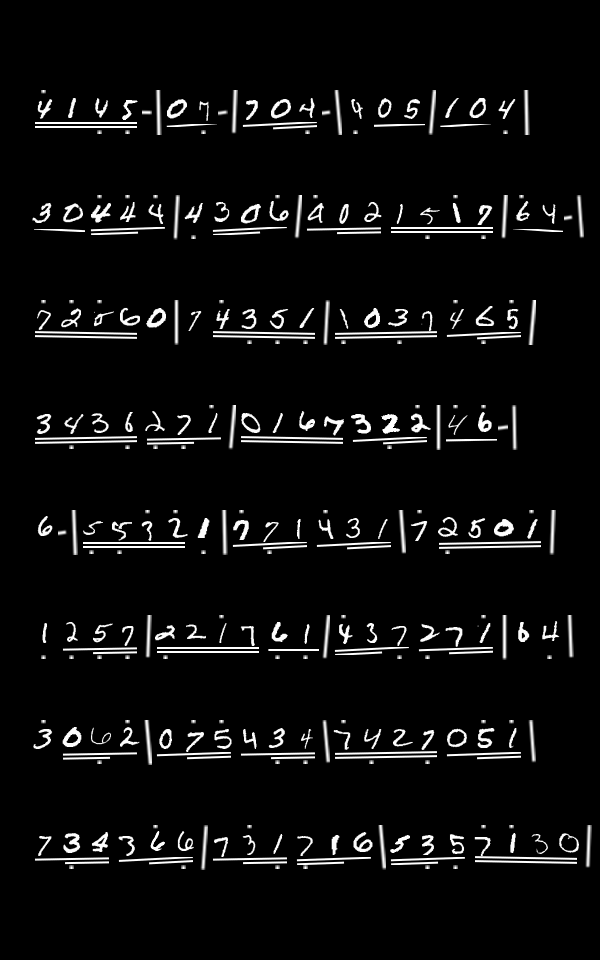 4145-|07-|704-|405|104|
30444|4306|4021517|64-|
72560|74351|1037465|
3436271|0167322|46-|
6-|55321|771431|72501|
1257|221761|437271|64|
3062|075434|7427051|
734366|731716|5357130|